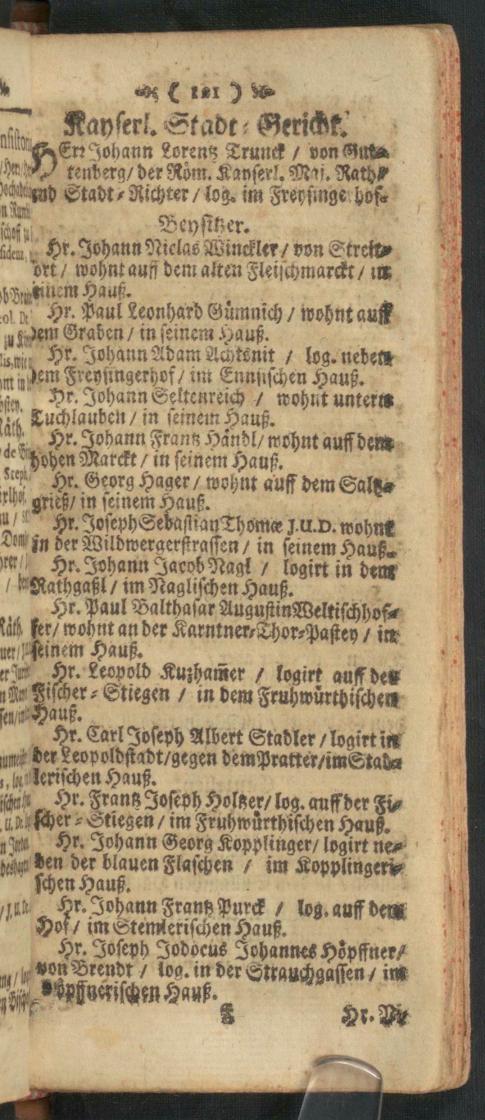 ( 121 )
Kayserl. Stadt-Gericht.
HErr Johann Lorentz Trunck / von Gut-
tenberg / der Röm. Kayserl. Maj. Rath /
und Stadt-Richter / log. im Freysingerhof.
Beysitzer.
Hr. Johann Niclas Winckler / von Streit-
ort / wohnt auff dem alten Fleischmarckt / in
seinem Hauß.
Hr. Paul Leonhard Gümnich / wohnt auff
dem Graben / in seinem Hauß.
Hr. Johann Adam Achtsnit / log. neben
dem Freysingerhof / im Ennsischen Hauß.
Hr. Johann Seltenreich / wohnt unterm
Tuchlauben / in seinem Hauß.
Hr. Johann Frantz Händl / wohnt auff dem
hohen Marckt / in seinem Hauß.
Hr. Georg Hager / wohnt auff dem Saltz-
grieß / in seinem Hauß.
Hr. Joseph Sebastian Thomæ J.U.D. wohnt
in der Wildwergerstrassen / in seinem Hauß.
Hr. Johann Jacob Nagl / logirt in dem
Rathgaßl / im Naglischen Hauß.
Hr. Paul Balthasar Augustin Weltischhof-
fer / wohnt an der Karntner-Thor-Pastey / in
seinem Hauß.
Hr. Leopold Kuzham̄er / logirt auff der
Fischer-Stiegen / in dem Fruhwürthischen
Hauß.
Hr. Carl Joseph Albert Stadler / logirt in
der Leopoldstadt / gegen dem Pratter / im Stad-
lerischen Hauß.
Hr. Frantz Joseph Holtzer / log. auff der Fi-
scher-Stiegen / im Fruhwürthischen Hauß.
Hr. Johann Georg Kopplinger / logirt ne-
ben der blauen Flaschen / im Kopplingeri-
schen Hauß.
Hr. Johann Frantz Purck / log. auff dem
Hof / im Stemlerischen Hauß.
Hr. Joseph Jodocus Johannes Höpffner /
von Brendt / log. in der Strauchgassen / im
Höpffnerischen Hauß.
Hr.